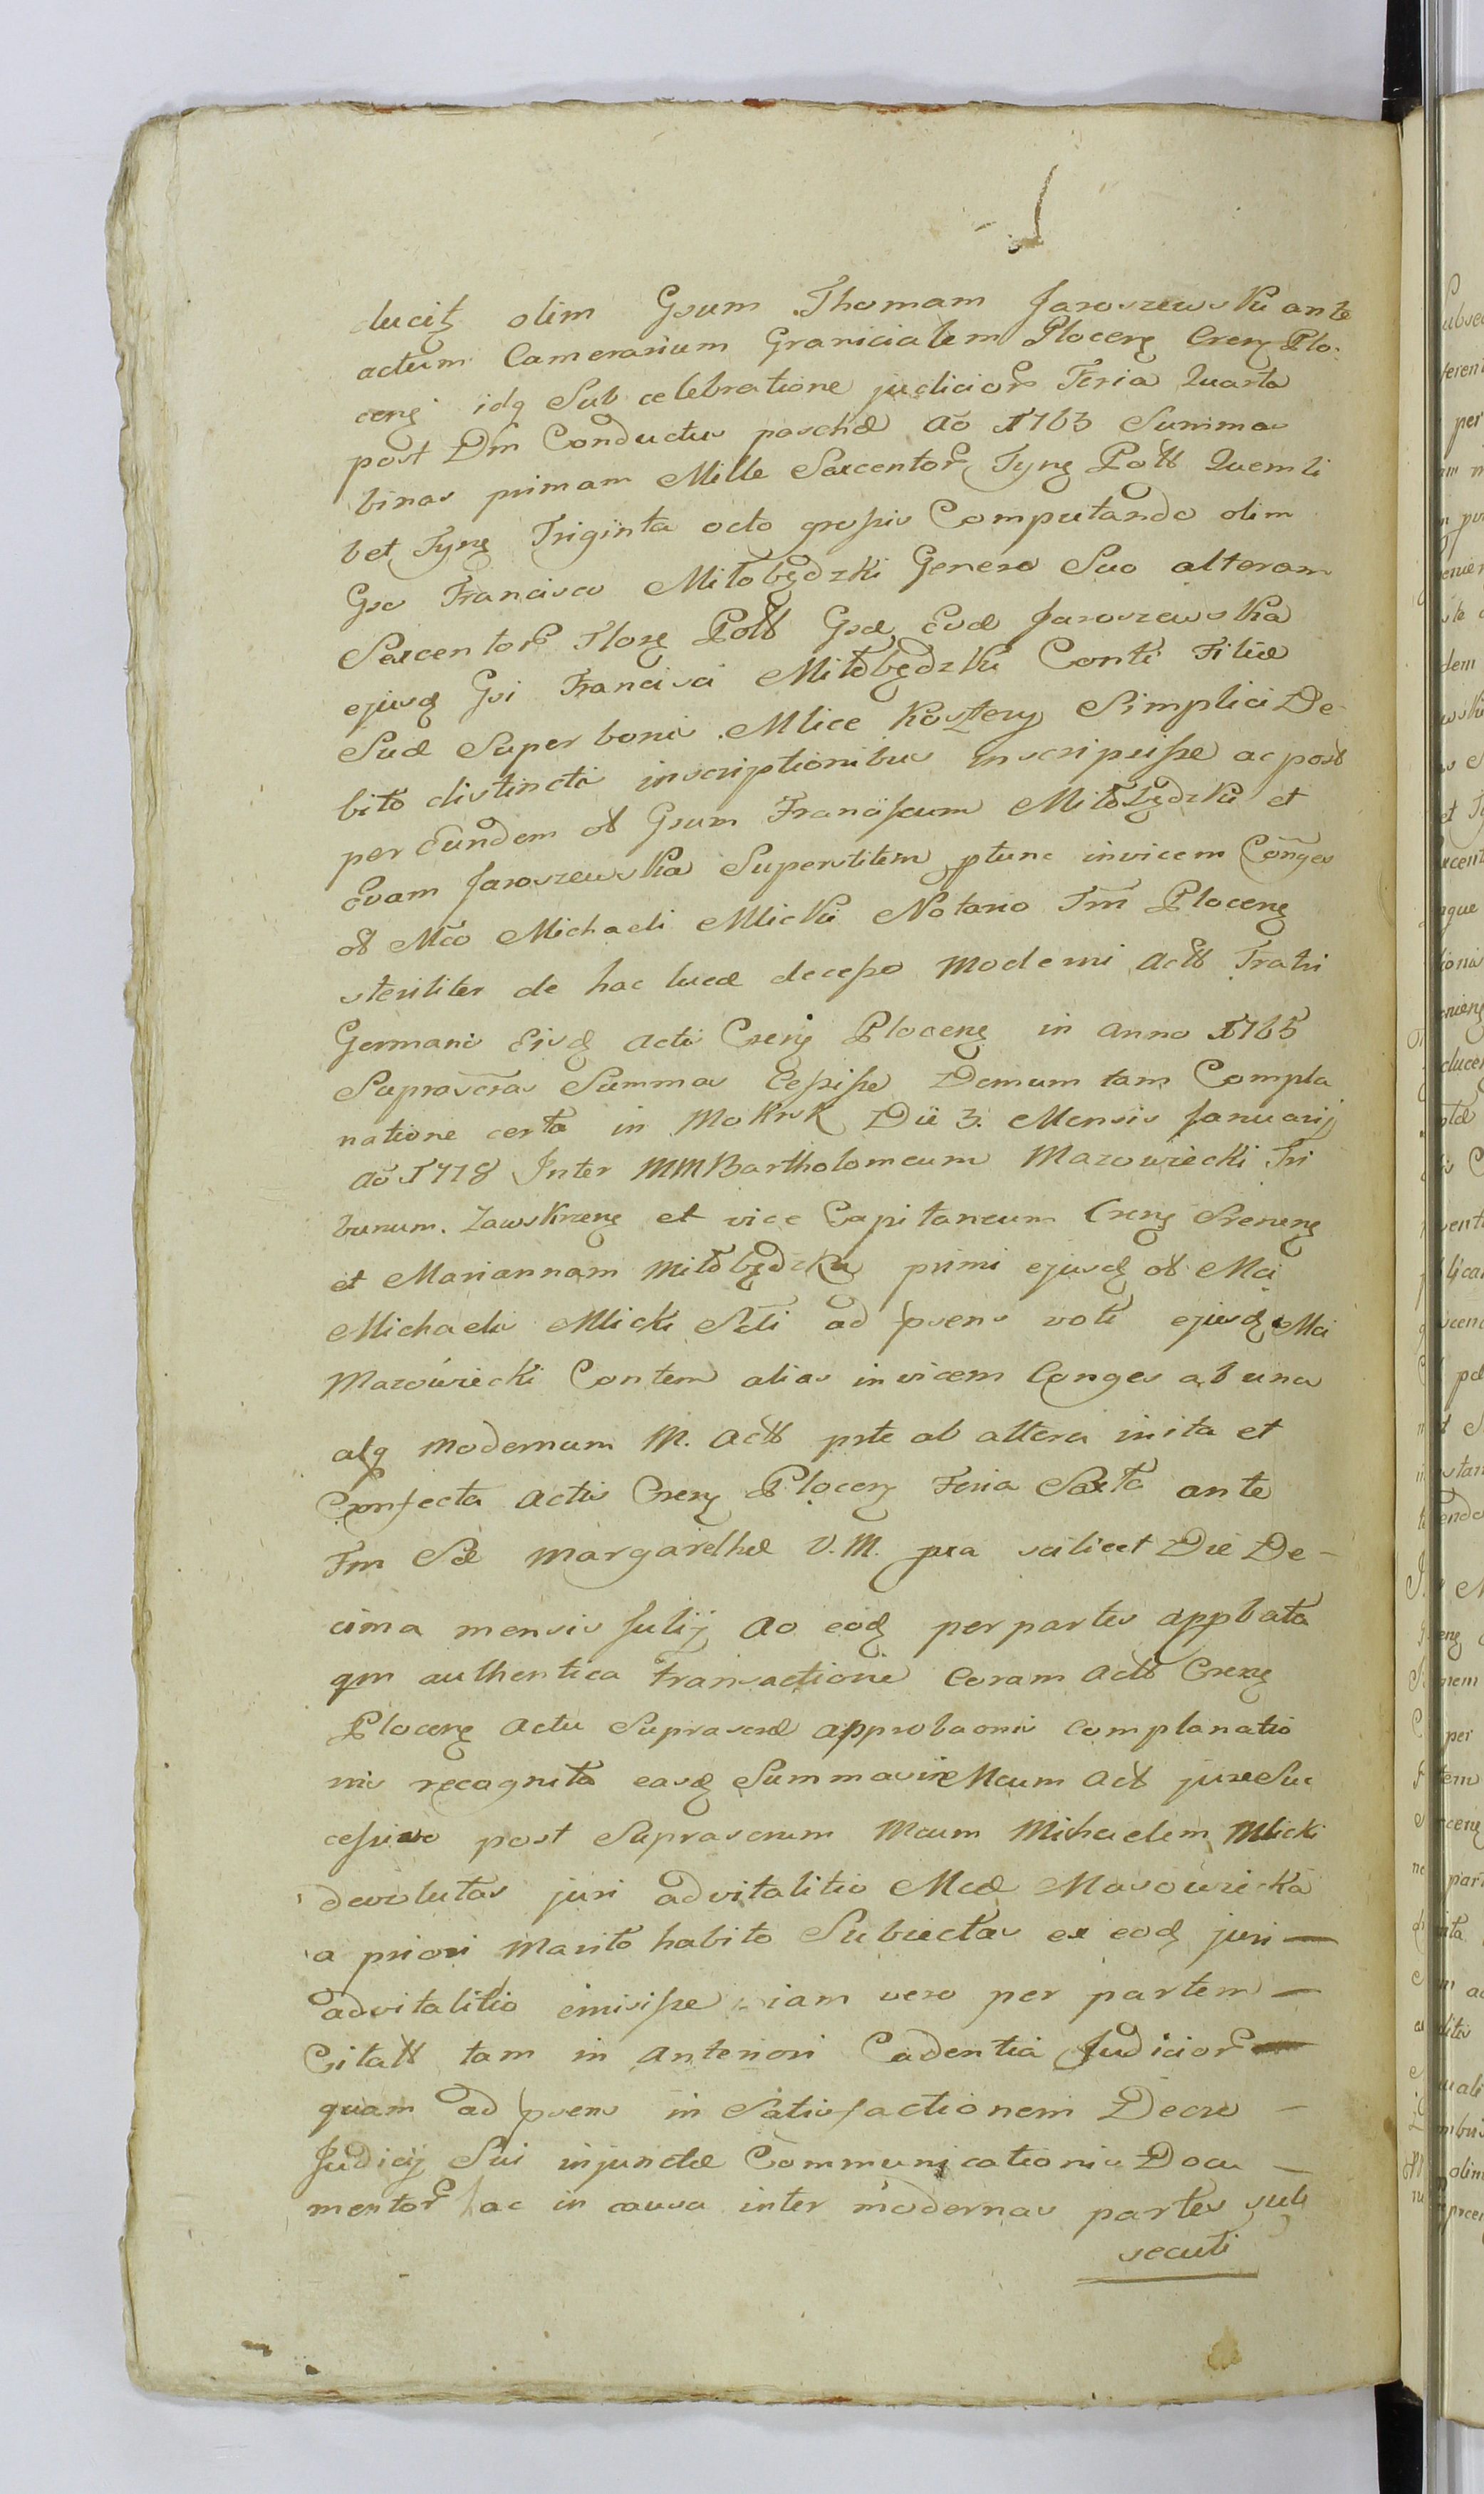 ducitz olim Gsum Thomam Jaroszewski ante
actum Camerarium Granicialem Ploceng Creng Plo:
ceng idq Sub celebratione judicior Feria Quarta
post Dm Conductus paschæ Ao 1763 Summas
binas primam Mille Sexcentor Tyng Poll Quemli
bet Tyng Triginta octo grossis Computando olim
Gso Francisco Miłobędzki Genero Suo alteram
Sexcentor Flong Poll Gsæ Evæ Jaroszewska
ejusq Gsi Francisci Miłobędzki Conti Filiæ
Suæ Super bonis Mlice Kostery Simplici De-
bito distinctis inscriptionibus inscripsisse ac post
per Eundem ol Gsum Francïscum Miłobędzki et
Evam Jaroszewska Superstitem ptunc invicem Conges
ol Mco Michaeli Mlicki Notario Tm Ploceng
steriliter de hac luce decesso moderni Actt Fratri
Germano Eisq Actis Creng Ploceng in anno 1765
Suprascras Summas Cessisse Demum tam Compla
natione certa in Mokrsk Dii 3. Mensis Januarij
Ao 1778 Inter MM Bartholomeum Mazowiecki Tri
bunum. Zawskrzeng et vice Capitaneum Creng Sreneng
et Mariannam Miłobędzka primi ejusq ol Mci
Michaelis Mlicki Scti ad psens voti ejusq Mci
Mazowiecki Contem alias invicem Conges ab una
alq modernum M. Actt prte ab altera inita et
Confecta Actis Creng Ploceng Feria Sexta ante
Fm Sæ Margarethæ V. M. pxa scilicet Die De-
cima mensis Julij Ao eoq per partes appbata
qm authentica transactione Coram Actt Creng
Ploceng Actu Suprascræ approbaonis complanatio
nis recognita easq Summas in Mcum Actt jure Suc
cessivo post Suprascrum Mcum Michaelem Mlicki
devolutas juri advitalitio Mcæ Mazowiecka
a priori Marito habito Subiectas ex eoq juri —
advitalitio emisisse iam vero per partem —
Citatt tam in Anteriori Cadentia Judicior —
quam ad psens in Satisfactionem Decre -
Judicij Sui injunctæ Communicationis Docu —
mentor hac in causa inter modernas partes sub
secuti